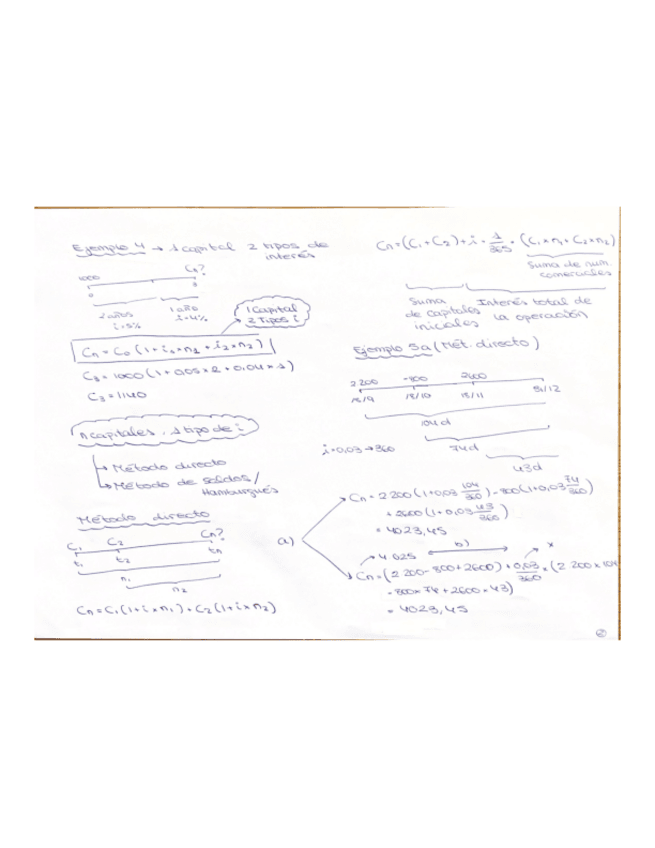 Ejemplo 4 → 1 capital 2 tipos de
interés
1000
Cn?
0
2 años
i=5%
1 año
i=4%
1 Capital
2 Tipos i
Cn = C0 (1 + i1 × n1 + i2 × n2)
C3 = 1000 (1 + 0,05 × 2 + 0,04 × 1)
C3 = 1140
n capitales, 1 tipo de i
→ Método directo
→ Método de saldos /
Hamburgués
Método directo
C1 C2 Cn?
t1 t2 tn
n1
n2
Cn = C1 (1 + i × n1) + C2 (1 + i × n2)
Cn = (C1 + C2) + i · 1/365 · (C1 × n1 + C2 × n2)
Suma de num.
comerciales
Suma
de capitales
iniciales
Interés total de
la operación
Ejemplo 5a (Mét. directo)
2200 -800 2600
18/10 18/11 31/12
104d
74d
43d
i=0,03 → 360
a)
Cn = 2200 (1+0,03 104/360) - 800 (1+0,03 74/360)
+ 2600 (1+0,03 43/360)
= 4023,45
→ 4025
b)
x
Cn = (2200 - 800 + 2600) + 0,03/360 × (2200 × 104
- 800 × 74 + 2600 × 43)
= 4023,45
2